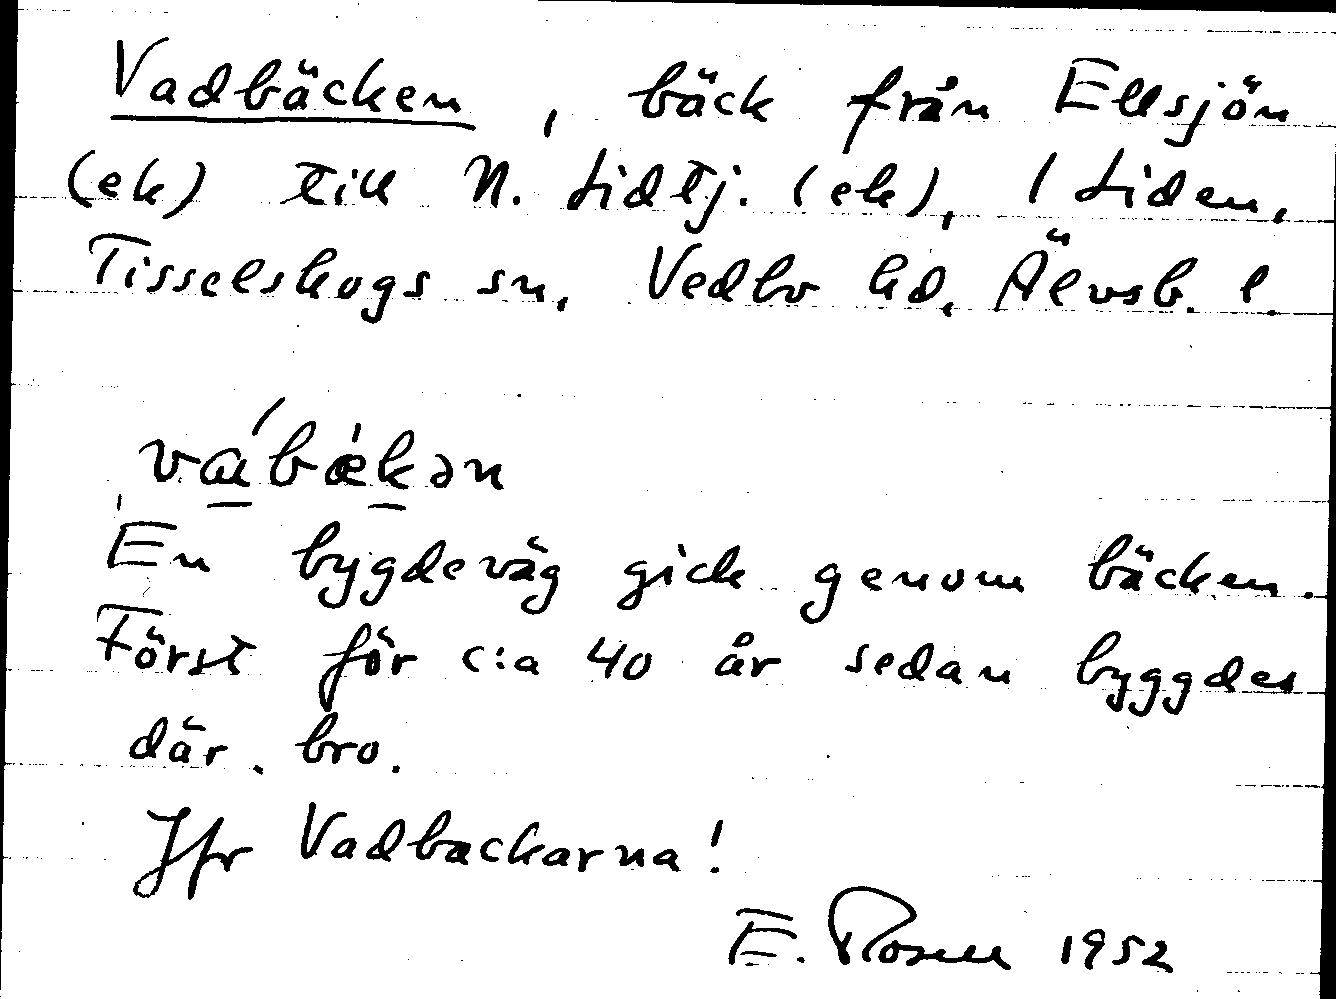 Vadbäcken, bäck från Ellsjön
(ek) till N. Lidtj. (ek), i Liden,
Tisselskogs sn, Vedbo hd, Älvsb. l.
vábæ̀kən
En bygdeväg gick genom bäcken.
Först för c:a 40 år sedan byggdes
där bro.
Jfr Vadbackarna!
E. Rosell 1952